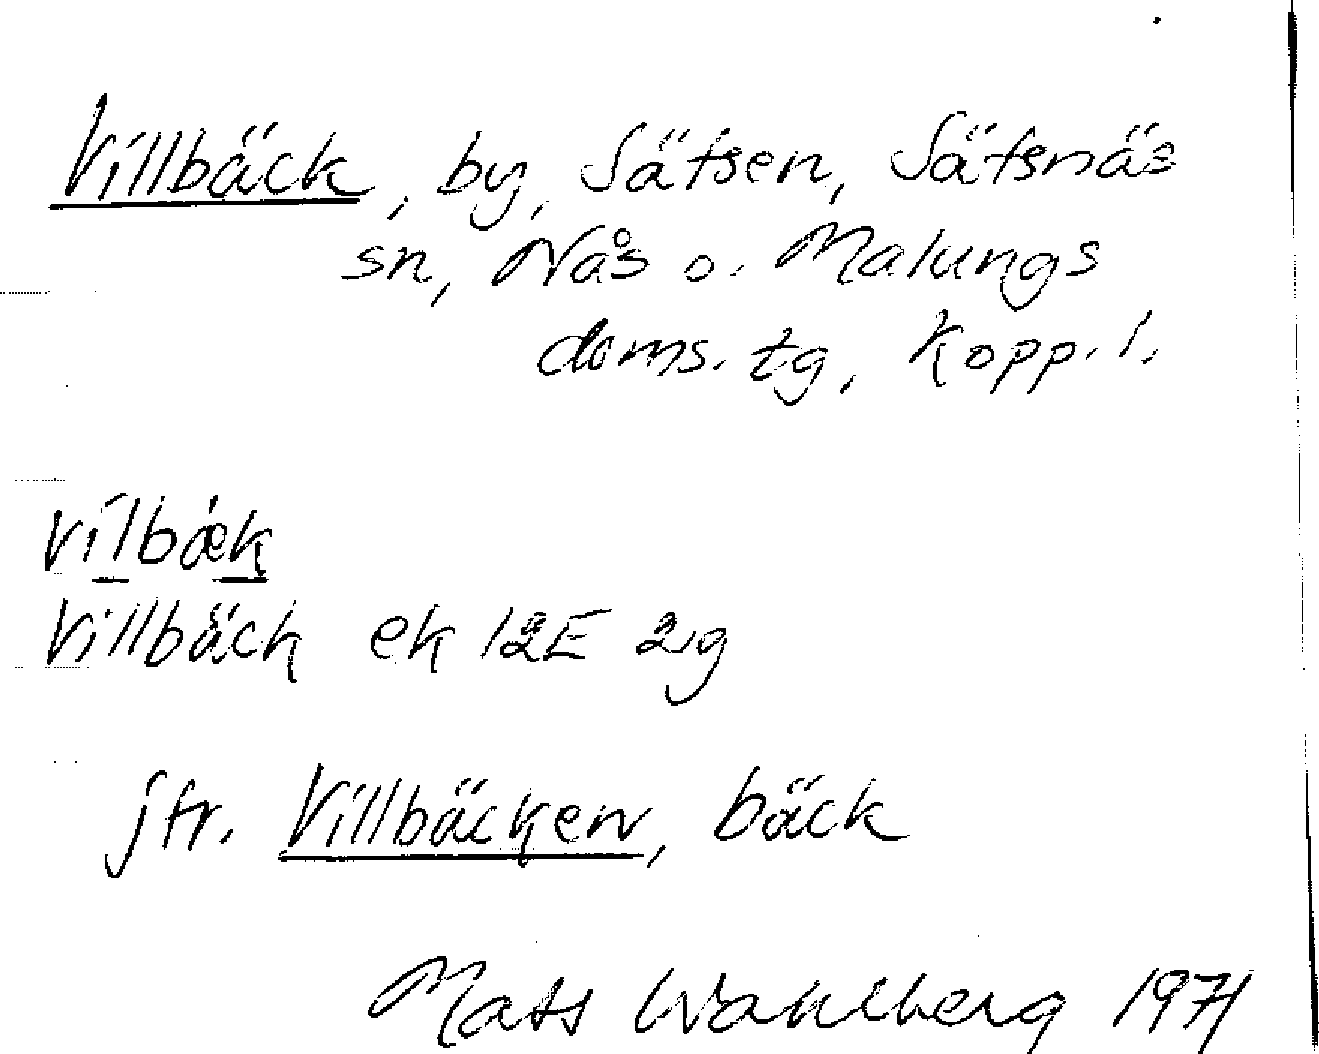 Villbäck, by, Säfsen, Säfsnäs
sn, Nås o. Malungs
doms. tg, Kopp. l.
vilbæk
Villbäck ek 12E 2g
jfr. Villbäcken, bäck
Mats Wahlberg 1971